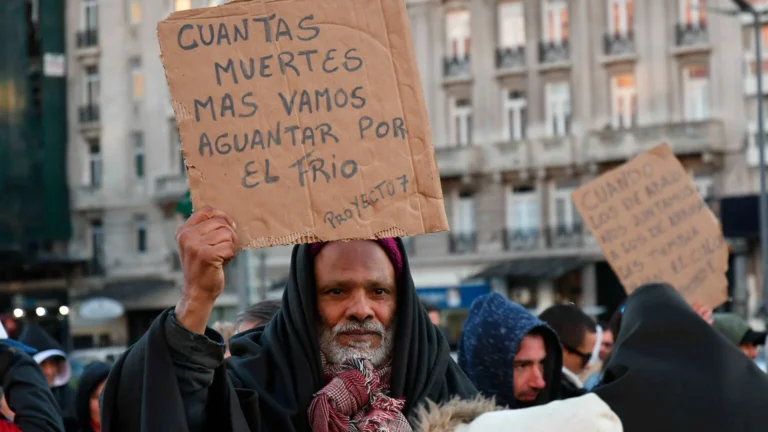 CUANTAS
MUERTES
MAS VAMOS
AGUANTAR POR
EL FRIO
PROYECTO 7
CUANDO
LOS DE ABAJO
LOS DE